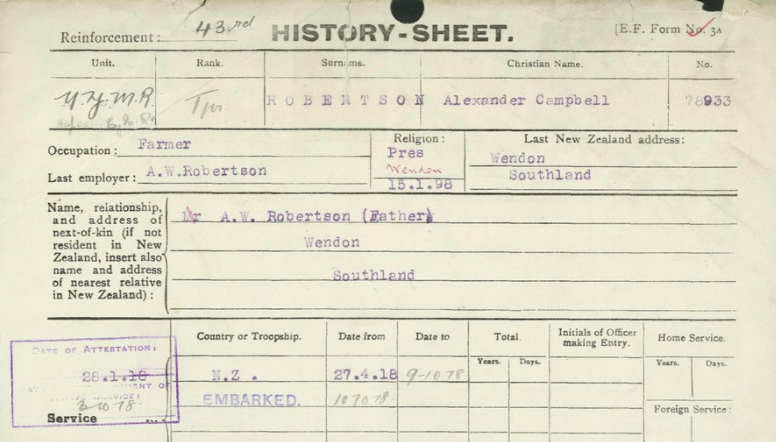 Reinforcement: 43rd HISTORY-SHEET. [E.F. Form No. 3A
Unit. Rank. Surname. Christian Name. No.
N.Z.M.R. Tpr. ROBERTSON Alexander Campbell 78933
Occupation: Farmer
Last employer: A.W.Robertson
Religion:
Pres
Wendon
15.1.98
Last New Zealand address:
Wendon
Southland
Name, relationship,
and address of
next-of-kin (if not
resident in New
Zealand, insert also
name and address
of nearest relative
in New Zealand):
Mr A.W. Robertson (Father)
Wendon
Southland
Country or Troopship. Date from Date to Total. Initials of Officer making Entry. Home Service.
Years. Days. Years. Days.
DATE OF ATTESTATION:
28.1.18
N.Z. 27.4.18
EMBARKED.
Service
Foreign Service: